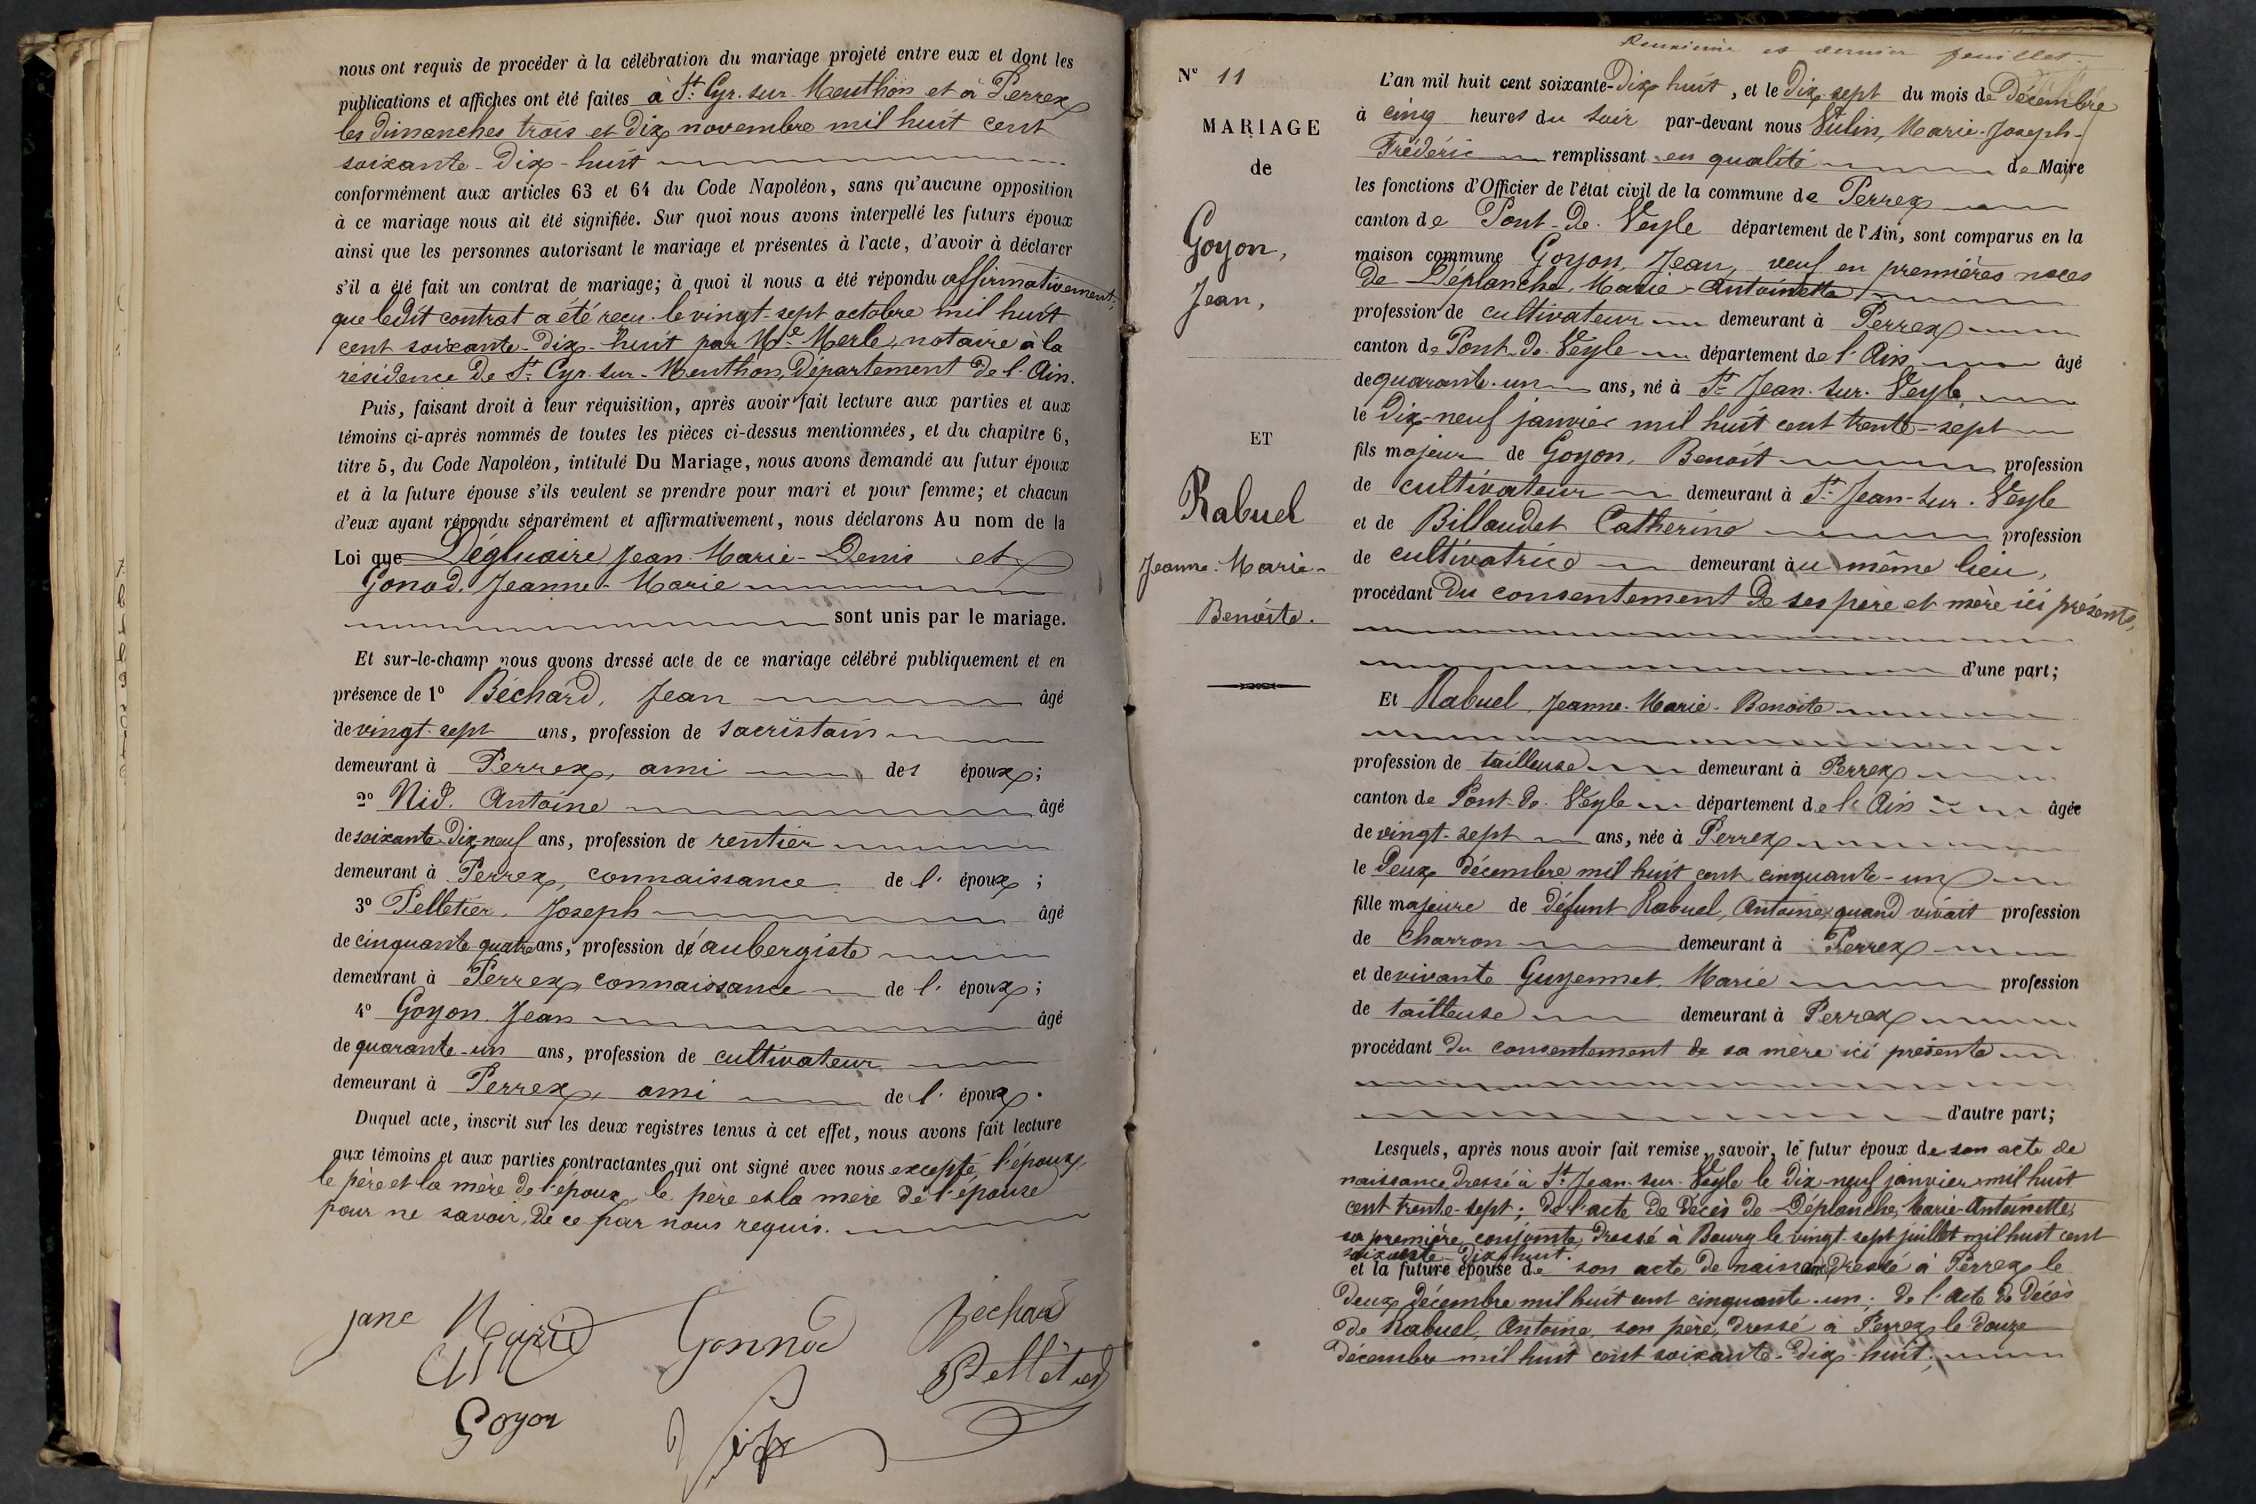 nous ont requis de procéder à la célébration du mariage projeté entre eux et dont les
publications et affiches ont été faites à St. Cyr-sur-Menthon et à Perrex
les dimanches trois et dix novembre mil huit cent
soixante-dix-huit
conformément aux articles 63 et 64 du Code Napoléon, sans qu'aucune opposition
à ce mariage nous ait été signifiée. Sur quoi nous avons interpellé les futurs époux
ainsi que les personnes autorisant le mariage et présentes à l'acte, d'avoir à déclarer
s'il a été fait un contrat de mariage; à quoi il nous a été répondu affirmativement,
que ledit contrat a été reçu le vingt-sept octobre mil huit
cent soixante-dix-huit par Me Merle, notaire à la
résidence de St. Cyr-sur-Menthon, Département de l'Ain.
Puis, faisant droit à leur réquisition, après avoir fait lecture aux parties et aux
témoins ci-après nommés de toutes les pièces ci-dessus mentionnées, et du chapitre 6,
titre 5, du Code Napoléon, intitulé Du Mariage, nous avons demandé au futur époux
et à la future épouse s'ils veulent se prendre pour mari et pour femme; et chacun
d'eux ayant répondu séparément et affirmativement, nous déclarons Au nom de la
Loi que Dégluaire Jean-Marie-Denis et
Gonod, Jeanne-Marie
sont unis par le mariage.
Et sur-le-champ nous avons dressé acte de ce mariage célébré publiquement et en
présence de 1º Béchard, Jean âgé
de vingt-sept ans, profession de sacristain
demeurant à Perrex, ami des époux;
2º Nid. Antoine âgé
de soixante-dix-neuf ans, profession de rentier
demeurant à Perrex, connaissance de l' époux;
3º Pelletier, Joseph âgé
de cinquante quatre ans, profession d'aubergiste
demeurant à Perrex, connaissance de l' époux;
4º Goyon, Jean âgé
de quarante-un ans, profession de cultivateur
demeurant à Perrex, ami de l' époux.
Duquel acte, inscrit sur les deux registres tenus à cet effet, nous avons fait lecture
aux témoins et aux parties contractantes qui ont signé avec nous excepté l'époux,
le père et la mère de l'époux, le père et la mère de l'épouse
pour ne savoir, de ce par nous requis.
jane Marie Gonnod Béchard
Pelletier
Goyon
Nº 11
MARIAGE
de
Goyon,
Jean,
ET
Rabuel
Jeanne-Marie-
Benoîte.
et dernier feuillet.
L'an mil huit cent soixante-dix huit, et le dix-sept du mois de Décembre
à cinq heures du soir par-devant nous Vulin, Marie-Joseph-
Frédéric remplissant en qualité de Maire
les fonctions d'Officier de l'état civil de la commune de Perrex
canton de Pont-de-Veyle département de l'Ain, sont comparus en la
maison commune Goyon, Jean, veuf en premières noces
de Déplanche, Marie-Antoinette
profession de cultivateur demeurant à Perrex
canton de Pont-de-Veyle département de l'Ain âgé
de quarante-un ans, né à St. Jean-sur-Veyle,
le dix-neuf janvier mil huit cent trente-sept
fils majeur de Goyon, Benoît profession
de cultivateur demeurant à St. Jean-sur-Veyle
et de Billaudet Catherine profession
de cultivatrice demeurant au même lieu,
procédant du consentement de ses père et mère ici présents,
d'une part;
Et Rabuel, Jeanne-Marie-Benoîte
profession de tailleuse demeurant à Perrex
canton de Pont-de-Veyle département de l'Ain âgée
de vingt-sept ans, née à Perrex
le deux décembre mil huit cent cinquante-un
fille majeure de défunt Rabuel, Antoine quand vivait profession
de charron demeurant à Perrex
et de vivante Guyennet Marie profession
de tailleuse demeurant à Perrex
procédant du consentement de sa mère ici présente
d'autre part;
Lesquels, après nous avoir fait remise, savoir, le futur époux de son acte de
naissance dressé à St. Jean-sur-Veyle le dix-neuf janvier mil huit
cent trente-sept; de l'acte de décès de Déplanche, Marie-Antoinette,
sa première conjointe, dressé à Bourg le vingt-sept juillet mil huit cent
soixante-dix-huit.
et la future épouse de son acte de naissance dressé à Perrex le
deux décembre mil huit cent cinquante-un; de l'acte de décès
de Rabuel, Antoine, son père, dressé à Perrex le douze
décembre mil huit cent soixante-dix-huit;